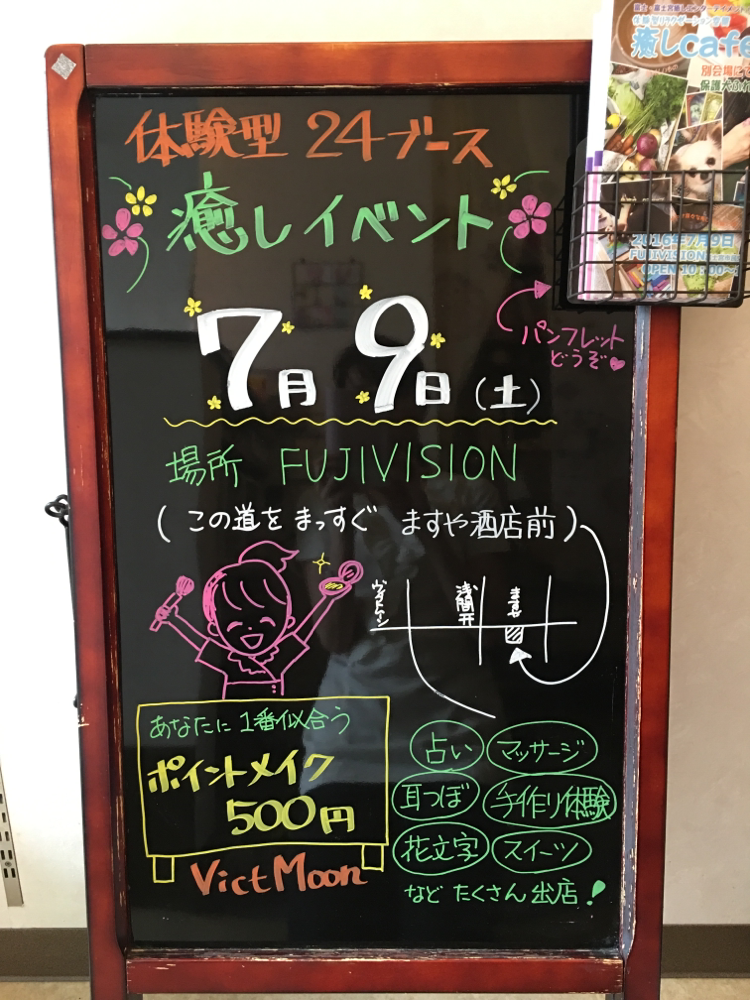 体験型 24ブース
癒しイベント
7月 9日(土)
パンフレット
どうぞ
場所 FUJIVISION
(この道をまっすぐ ますや酒店前)
浅間井
ますや
あなたに 1番似合う
ポイントメイク
500円
VictMoon
占い マッサージ
耳つぼ 手作り体験
花文字 スイーツ
など たくさん出店!
癒しcafe
別会場にて
2016年7月9日
FUJIVISION
OPEN 10:00~